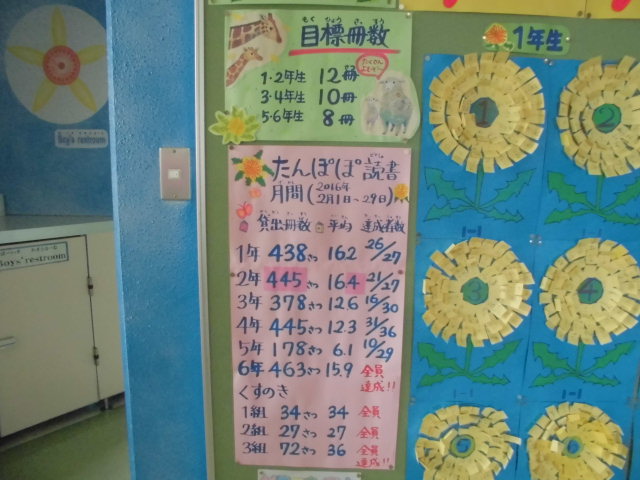 もく ひょう さっ すう
目標冊数
たくさん
よもう!
1・2年生 12冊
3・4年生 10冊
5・6年生 8冊
1年生
1
2
3
4
たんぽぽ読書
月間(2016年
2月1日~29日)
貸出冊数 平均 達成者数
1年 438さつ 16.2 26/27
2年 445さつ 16.4 21/27
3年 378さつ 12.6 16/30
4年 445さつ 12.3 31/36
5年 178さつ 6.1 10/29
6年 463さつ 15.9 全員
達成!!
くすのき
1組 34さつ 34 全員
2組 27さつ 27 全員
3組 72さつ 36 全員
達成!!
1-1
1-1
1-1
Boy's restroom
Boys' restroom